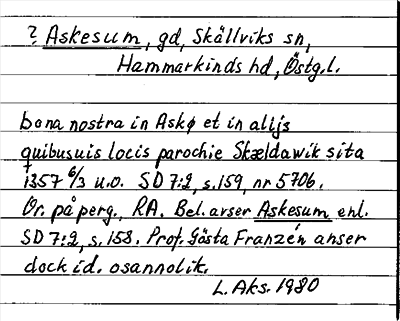 ? Askesum, gd, Skällviks sn,
Hammarkinds hd, Östg.l.
bona nostra in Askø et in alijs
quibusuis locis parochie Skældawik sita
1357 6/3 u.o. SD 7:2, s.159, nr 5706.
Or. på perg., RA. Bel. avser Askesum enl.
SD 7:2, s. 158. Prof. Gösta Franzén anser
dock id. osannolik.
L. Aks. 1980